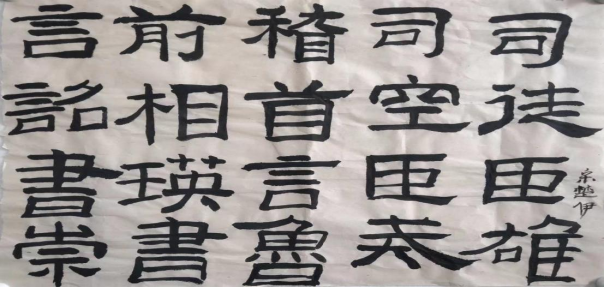 司徒臣雄
司空臣戒
稽首言魯
前相瑛書
言詔書崇
伊